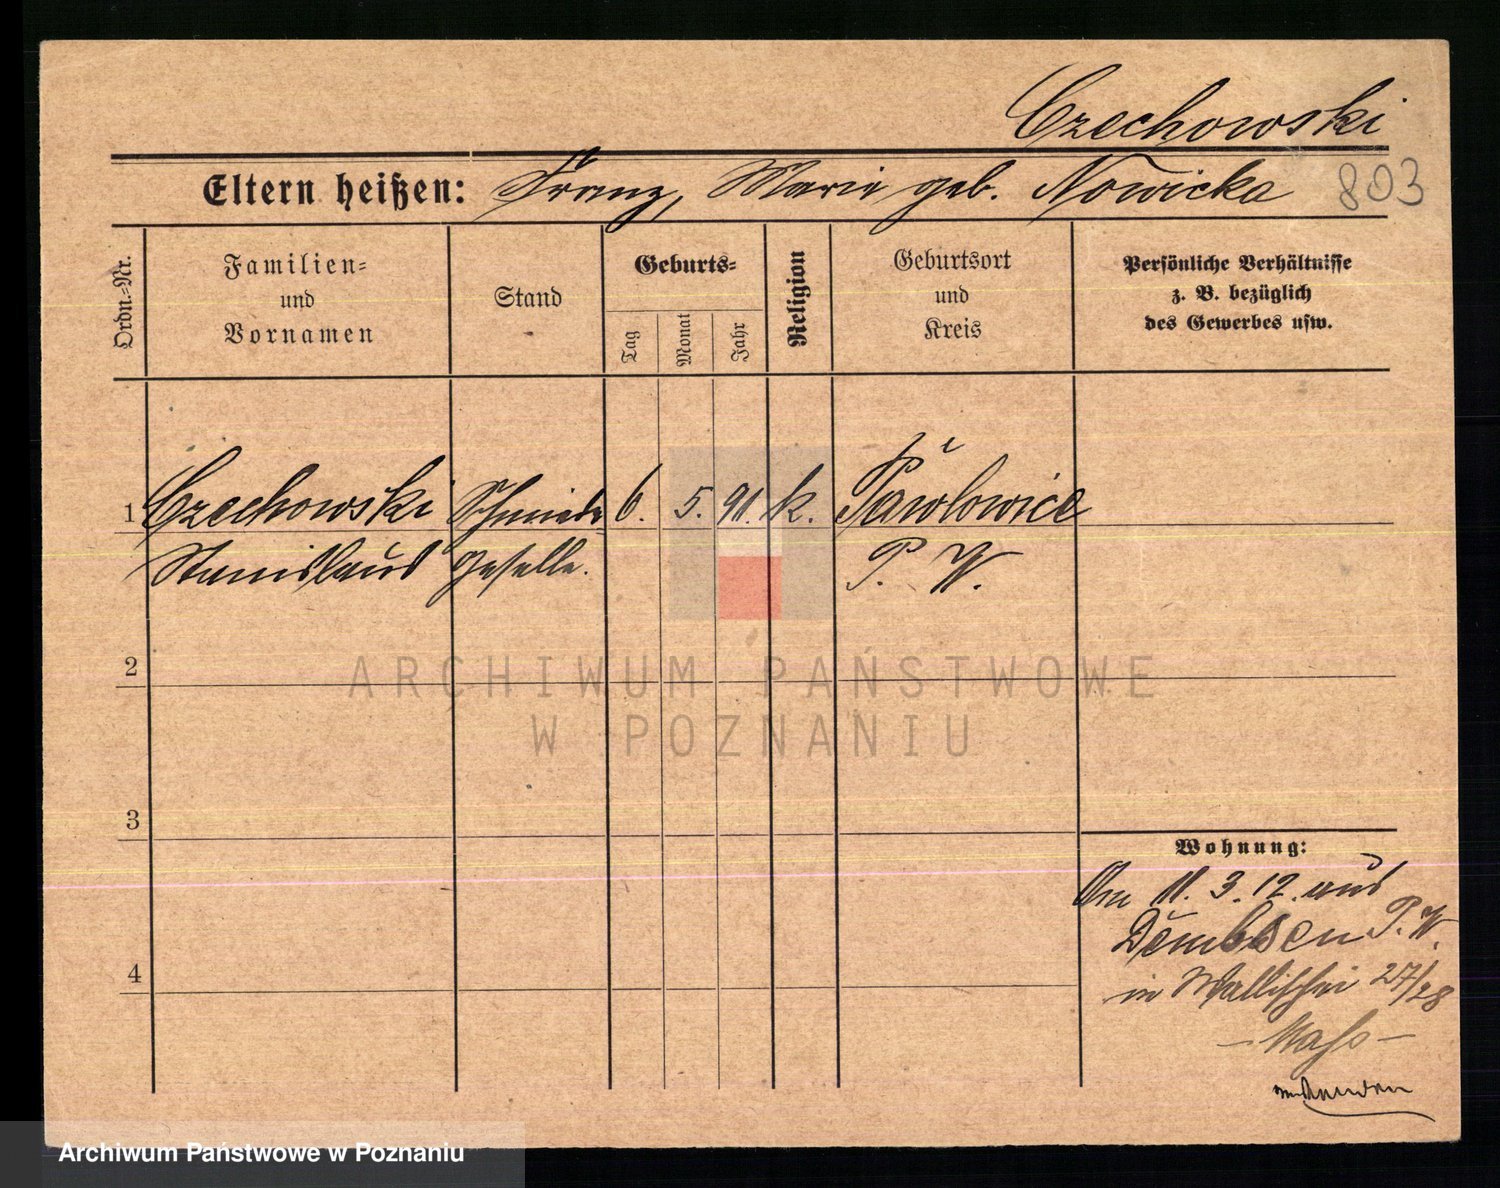 Czechowski
Eltern heißen: Franz, Marie geb. Nowicka 803
Ordn.-Nr.
Familien-
und
Vornamen
Stand
Geburts-
Tag
Monat
Jahr
Religion
Geburtsort
und
Kreis
Persönliche Verhältnisse
z. B. bezüglich
des Gewerbes usw.
1 Czechowski Schmiede 6. 5. 91. k. Pawlowice
Stanislaus geselle. P. W.
2
ARCHIWUM PAŃSTWOWE
W POZNANIU
3
Wohnung:
Am 11. 3. 12. aus
Dembsen P. W.
in Wallischei 27/28
4
Archiwum Państwowe w Poznaniu